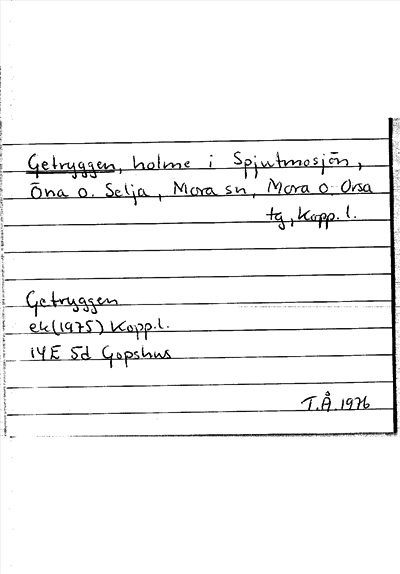 Getryggen, holme i Spjutmosjön,
Öna o. Selja, Mora sn, Mora o. Orsa
tg, Kopp. l.
Getryggen
ek (1975) Kopp. l.
14E 5d Gopshus
T.Å. 1976